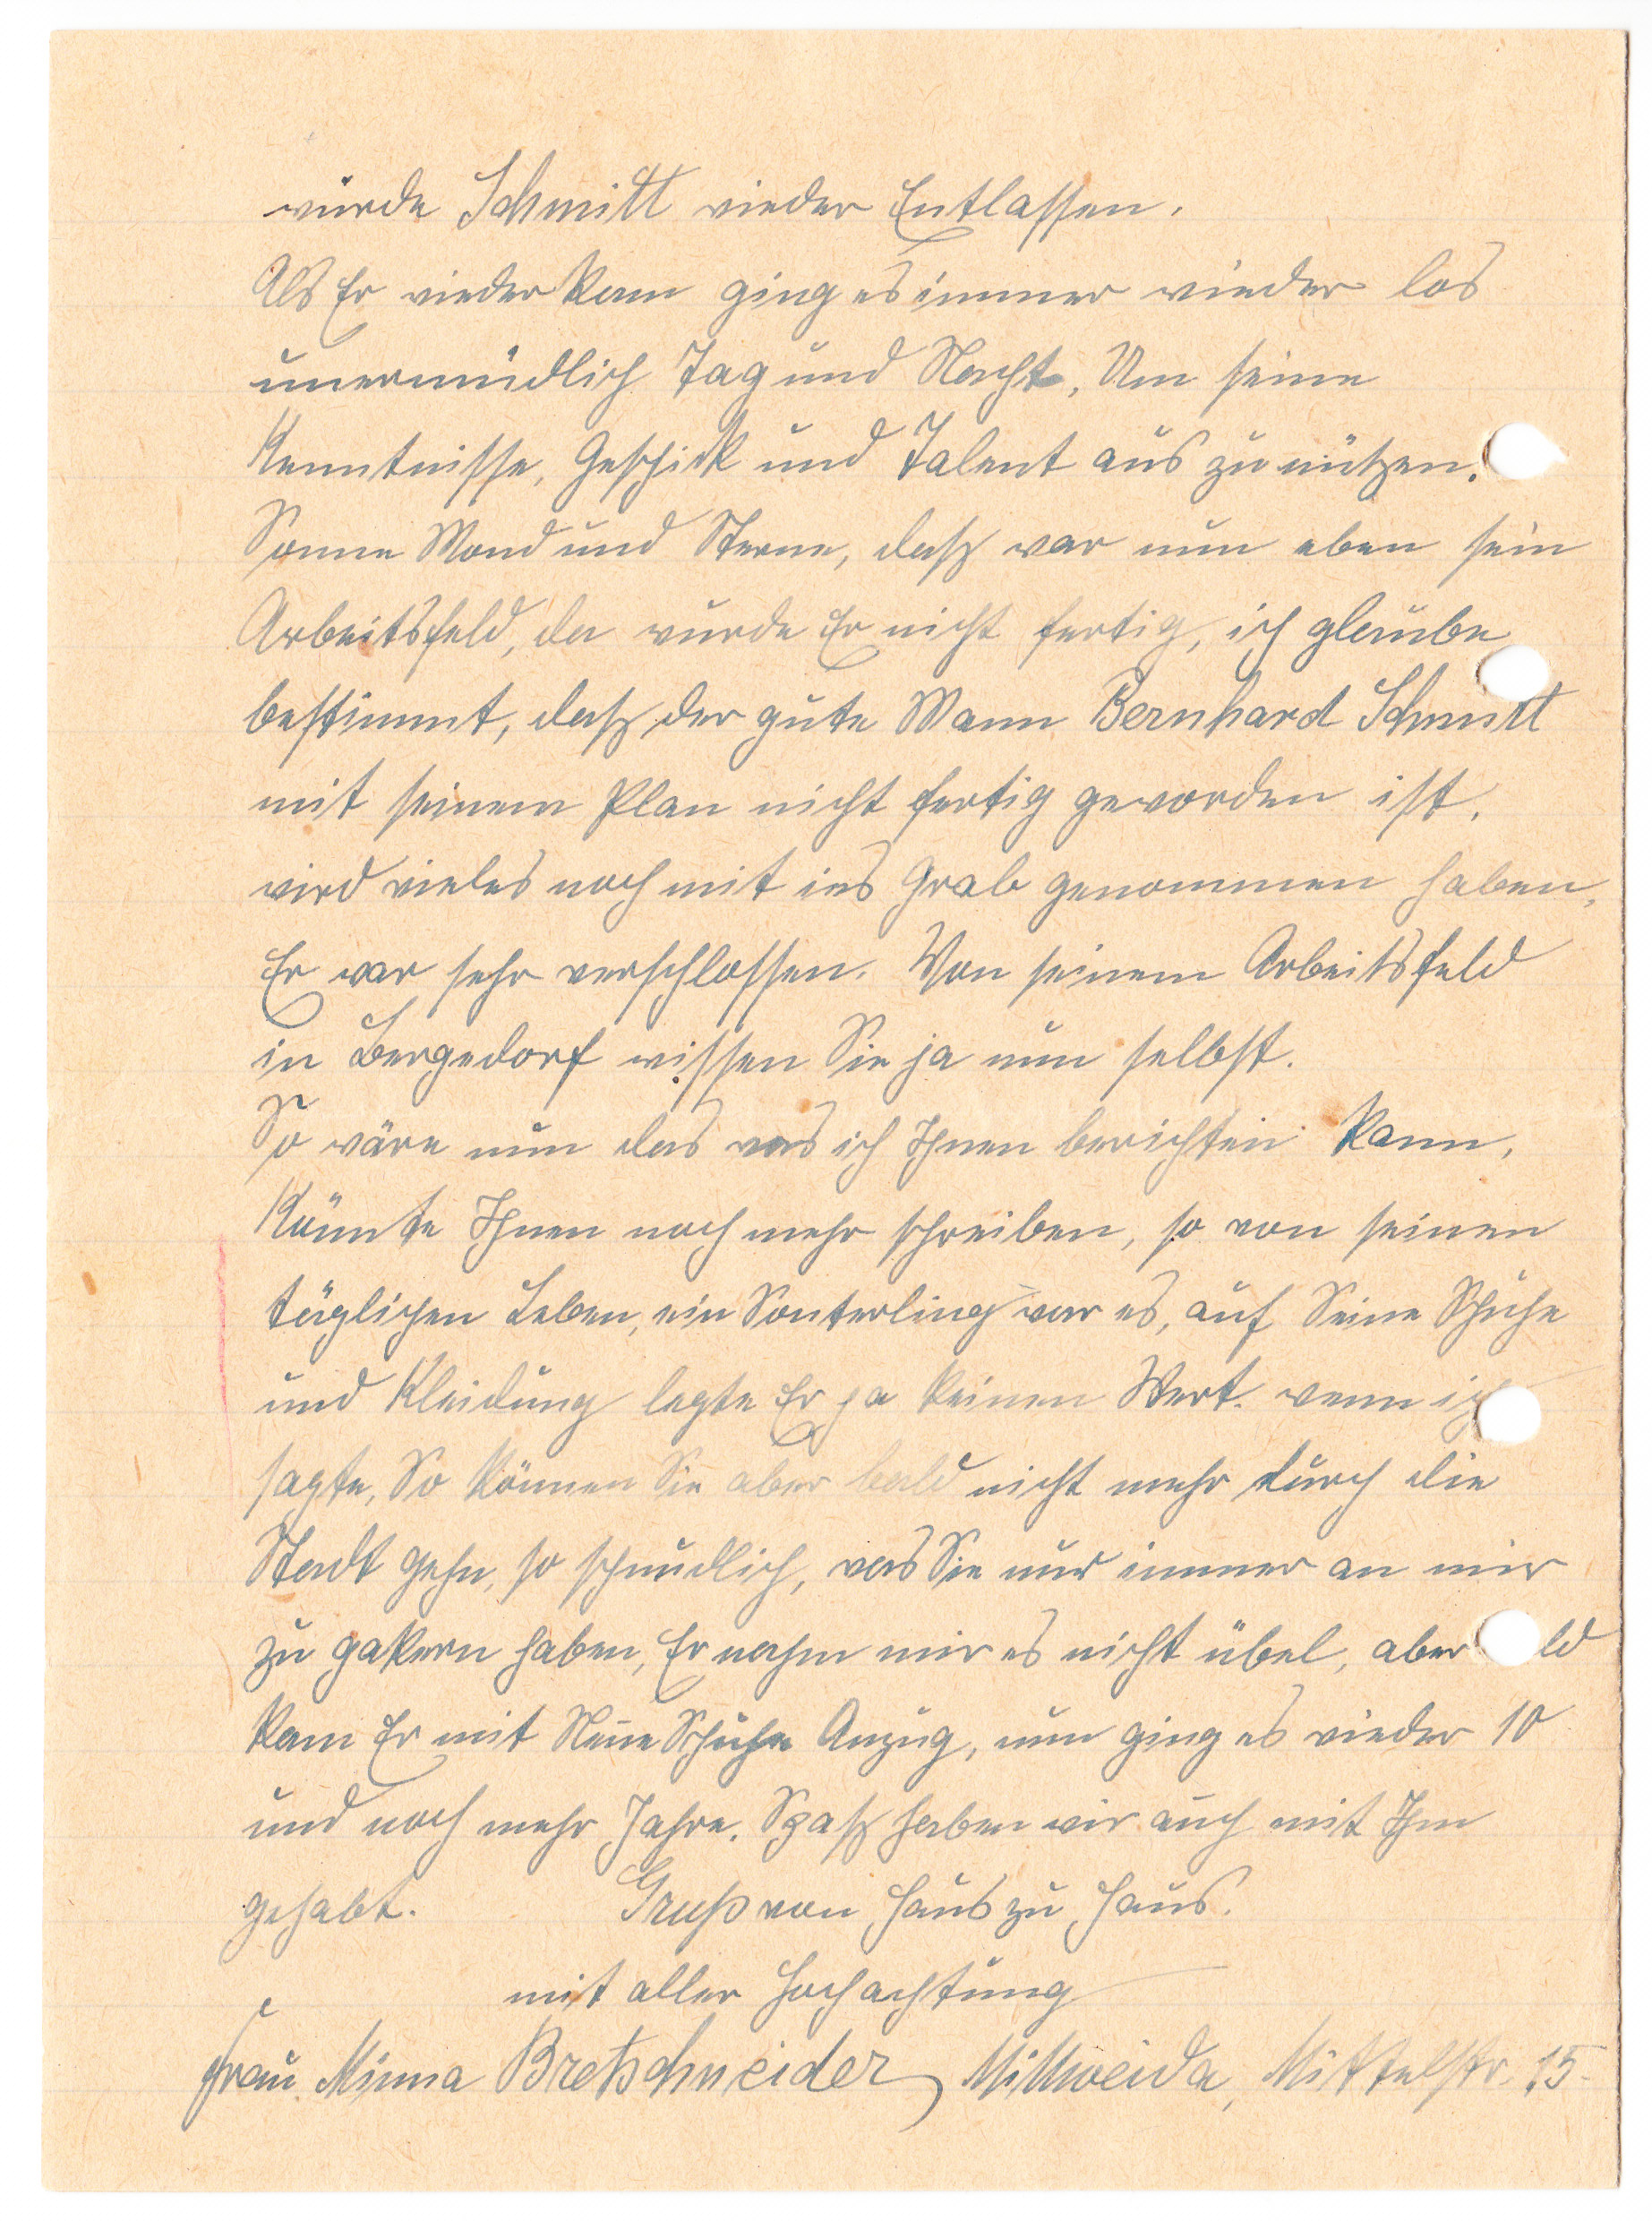 wurde Schmitt wieder Entlassen.
Als Er wieder kam ging es immer wieder los
unermüdlich Tag und Nacht, Um seine
Kenntnisse, Geschick und Talent aus zu nützen.
Sonne Mond und Sterne, dass war nun eben sein
Arbeitsfeld, da wurde Er nicht fertig, ich glaube
bestimmt, dass der gute Mann Bernhard Schmitt
mit seinem Plan nicht fertig geworden ist,
wird vieles noch mit ins Grab genommen haben,
Er war sehr verschlossen. Von seinem Arbeitsfeld
in Bergedorf wissen Sie ja nun selbst.
So wäre nun das was ich Ihnen berichten kann,
Könnte Ihnen noch mehr schreiben, so von seinen
täglichen Leben, ein Sonterling war es, auf Seine Schuhe
und Kleidung legte Er ja keinen Wert. wenn ich
sagte, So können Sie aber bald nicht mehr durch die
Stadt gehn, so schmudlich, was Sie nur immer an mir
zu gakern haben, Er nahm mir es nicht übel, aber ld
kam Er mit Neue Schuhe Anzug, nun ging es wieder 10
und noch mehr Jahre. Spass haben wir auch mit Ihm
gehabt. Gruß von Haus zu Haus.
mit aller Hochachtung
Frau Minna Bretschneider, Mittweida, Mittelstr. 15.